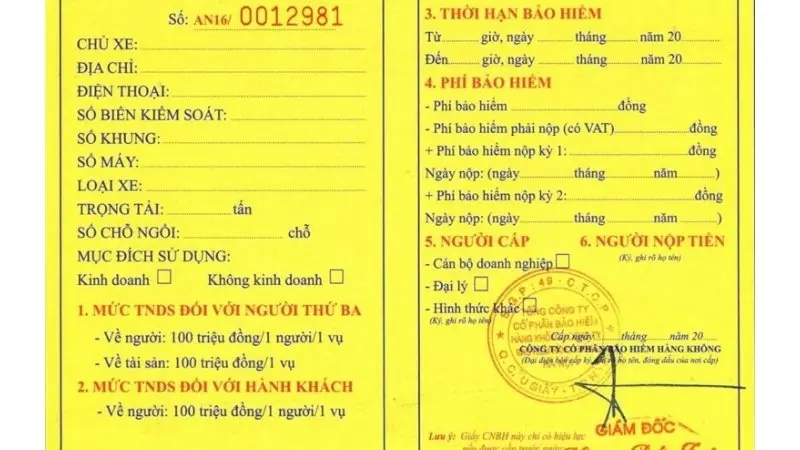 Số: AN16/ 0012981
CHỦ XE:
ĐỊA CHỈ:
ĐIỆN THOẠI:
SỐ BIỂN KIỂM SOÁT:
SỐ KHUNG:
SỐ MÁY:
LOẠI XE:
TRỌNG TẢI: tấn
SỐ CHỖ NGỒI: chỗ
MỤC ĐÍCH SỬ DỤNG:
Kinh doanh ☐ Không kinh doanh ☐
1. MỨC TNDS ĐỐI VỚI NGƯỜI THỨ BA
- Về người: 100 triệu đồng/1 người/1 vụ
- Về tài sản: 100 triệu đồng/1 vụ
2. MỨC TNDS ĐỐI VỚI HÀNH KHÁCH
- Về người: 100 triệu đồng/1 người/1 vụ
3. THỜI HẠN BẢO HIỂM
Từ giờ, ngày tháng năm 20
Đến giờ, ngày tháng năm 20
4. PHÍ BẢO HIỂM
- Phí bảo hiểm đồng
- Phí bảo hiểm phải nộp (có VAT) đồng
+ Phí bảo hiểm nộp kỳ 1: đồng
Ngày nộp: (ngày tháng năm )
+ Phí bảo hiểm nộp kỳ 2: đồng
Ngày nộp: (ngày tháng năm )
5. NGƯỜI CẤP 6. NGƯỜI NỘP TIỀN
(Ký, ghi rõ họ tên)
- Cán bộ doanh nghiệp ☐
- Đại lý ☐
- Hình thức khác ☐
(Ký, ghi rõ họ tên)
Cấp ngày tháng năm 20
CÔNG TY CỔ PHẦN BẢO HIỂM HÀNG KHÔNG
(Đại diện bên cấp ký, ghi rõ họ tên, đóng dấu của nơi cấp)
TỔNG CÔNG TY
CỔ PHẦN BẢO HIỂM
HÀNG KHÔNG
GIÁM ĐỐC
Lưu ý: Giấy CNBH này chỉ có hiệu lực